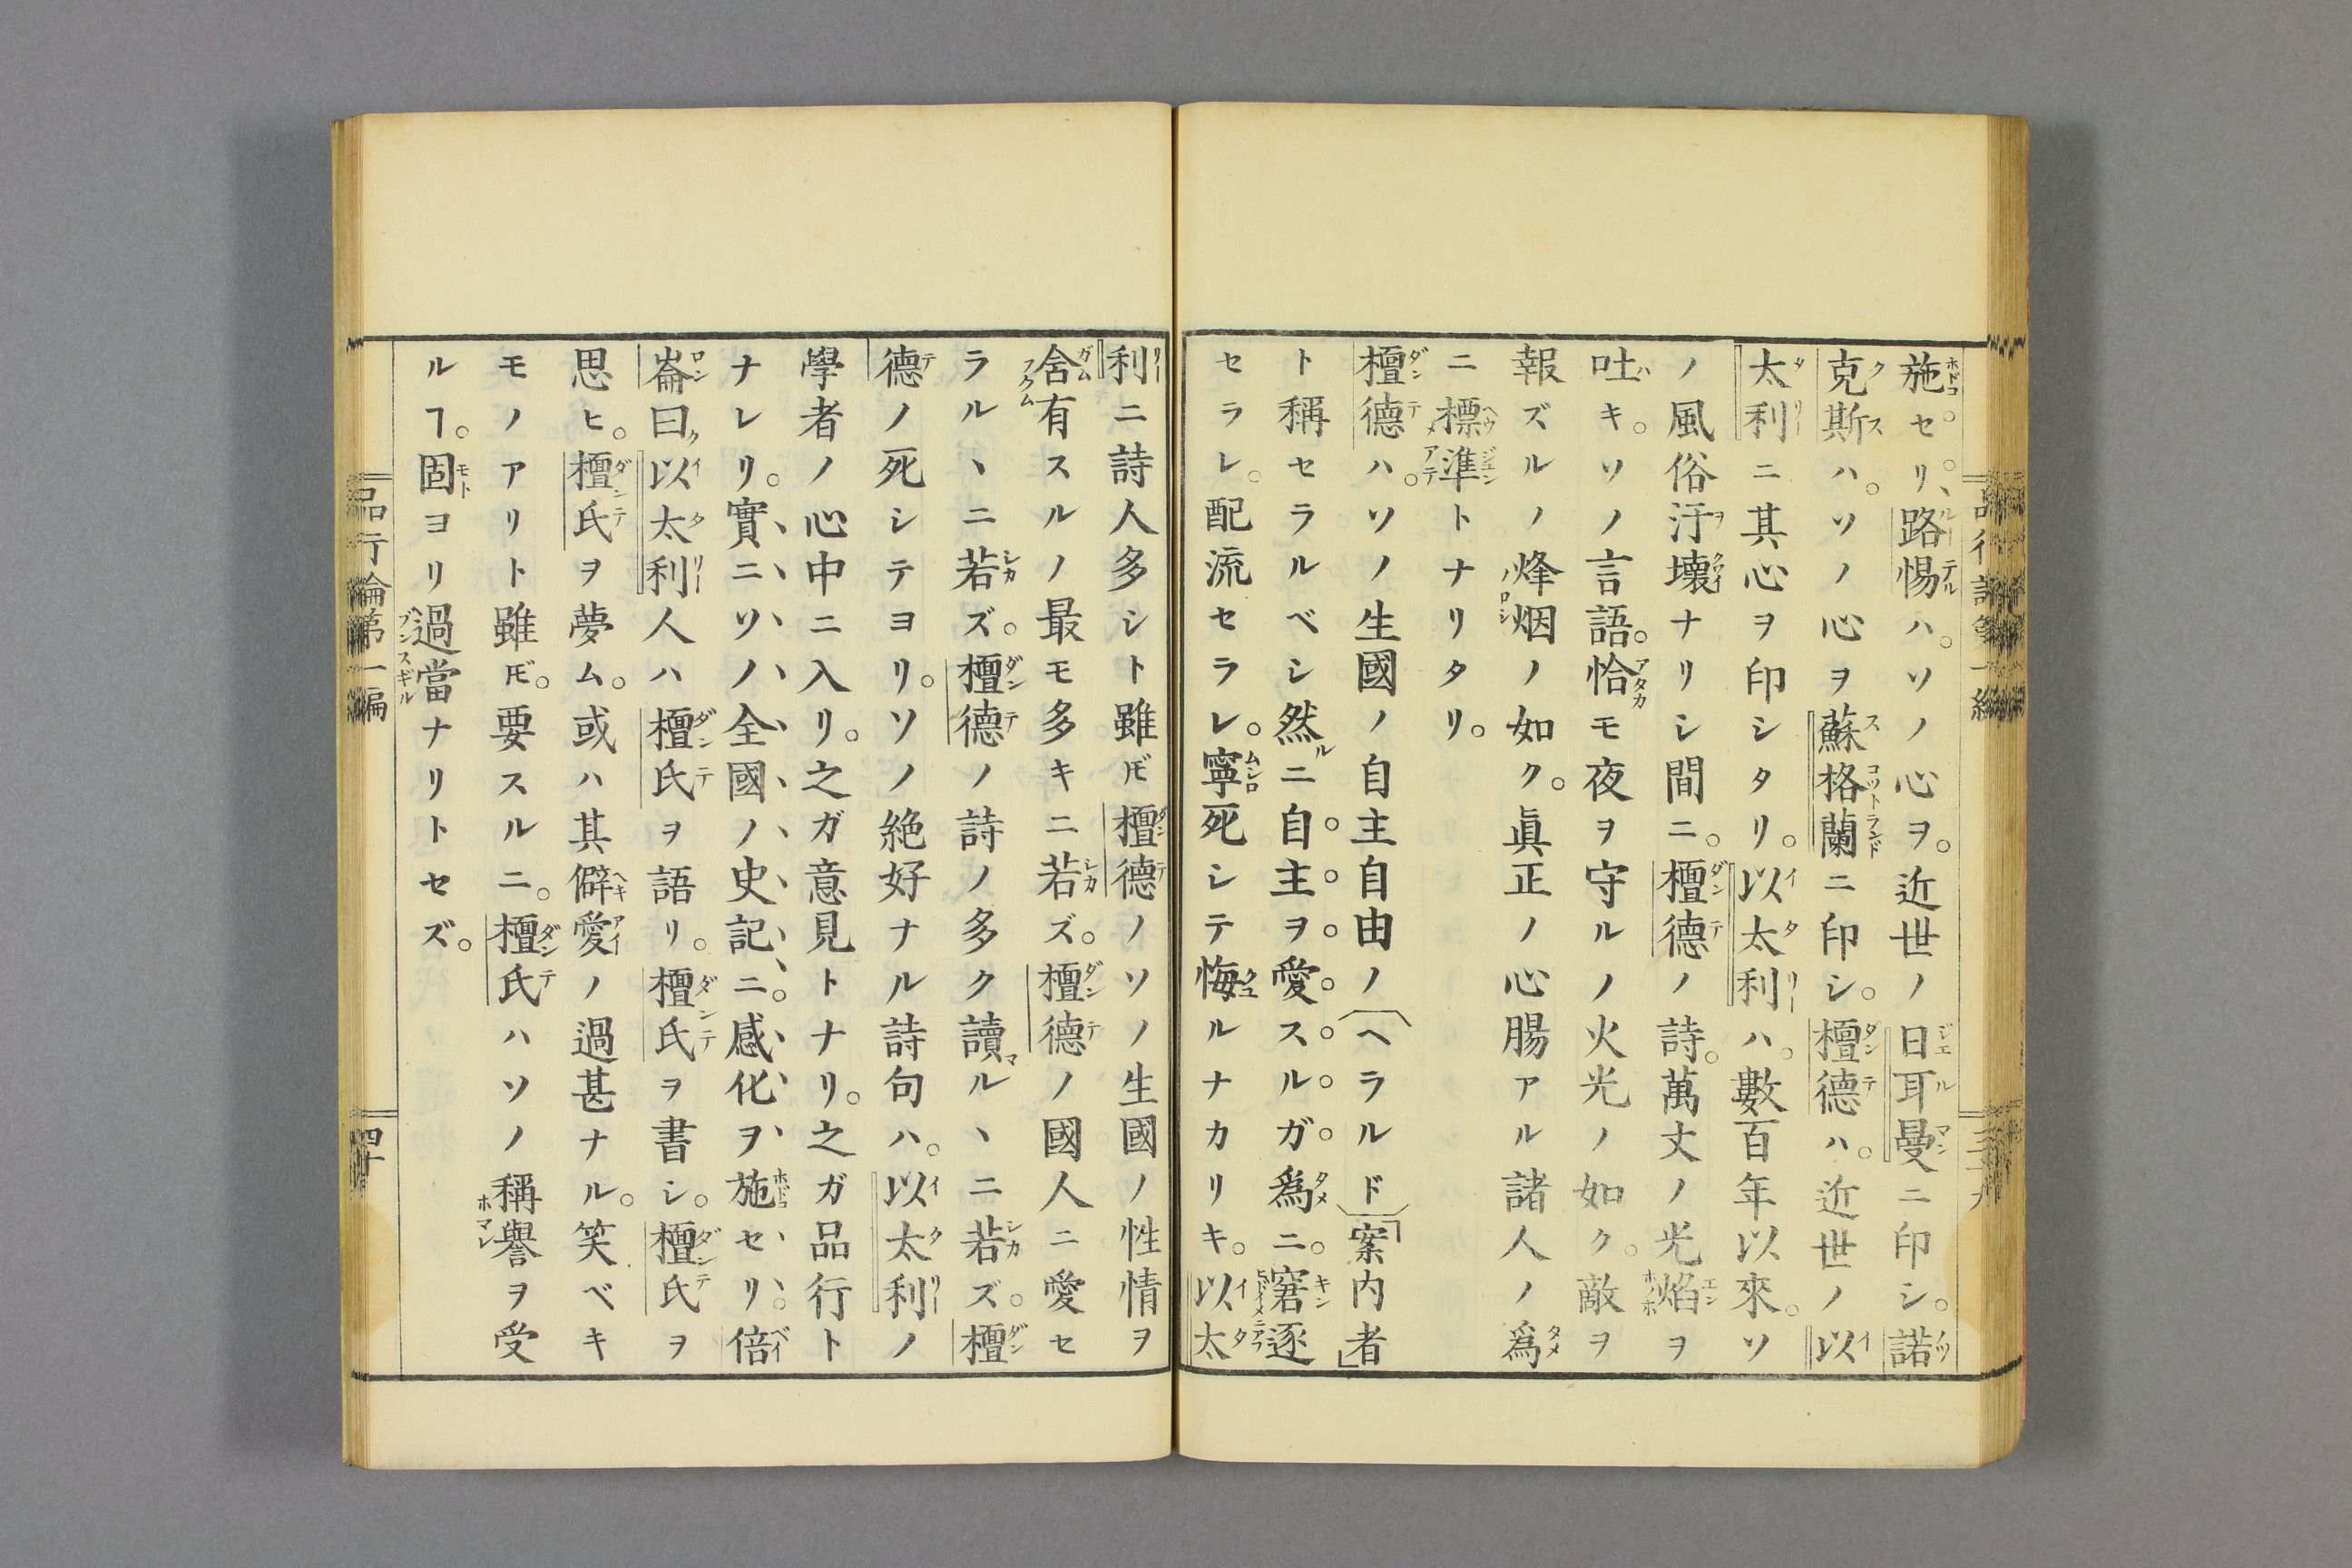 施セリ。路惕ハ。ソノ心ヲ。近世ノ日耳曼ニ印シ。諾
克斯ハ。ソノ心ヲ蘇格蘭ニ印シ。檀德ハ。近世ノ以
太利ニ其心ヲ印シタリ。以太利ハ。數百年以來。ソ
ノ風俗汙壞ナリシ間ニ。檀德ノ詩。萬丈ノ光焰ヲ
吐キ。ソノ言語。恰モ夜ヲ守ルノ火光ノ如ク。敵ヲ
報ズルノ烽烟ノ如ク。眞正ノ心腸アル諸人ノ爲
ニ標準トナリタリ。
檀德ハ。ソノ生國ノ自主自由ノ〔ヘラルド〕「案内者」
ト稱セラルベシ然ニ自主ヲ愛スルガ爲ニ。窘逐
セラレ。配流セラレ。寧死シテ悔ルナカリキ。以太
利ニ詩人多シト雖𪜈檀德ノソノ生國ノ性情ヲ
含有スルノ最モ多キニ若ズ。檀德ノ國人ニ愛セ
ラルヽニ若ズ。檀德ノ詩ノ多ク讀ルヽニ若ズ。檀
德ノ死シテヨリ。ソノ絶好ナル詩句ハ。以太利ノ
學者ノ心中ニ入リ。之ガ意見トナリ。之ガ品行ト
ナレリ。實ニソノ全國ノ史記ニ。感化ヲ施セリ。倍
崙曰ク以太利人ハ檀氏ヲ語リ。檀氏ヲ書シ。檀氏ヲ
思ヒ。檀氏ヲ夢ム。或ハ其僻愛ノ過甚ナル。笑ベキ
モノアリト雖𪜈。要スルニ。檀氏ハソノ稱譽ヲ受
ルヿ。固ヨリ過當ナリトセズ。
品行論第一編
四十